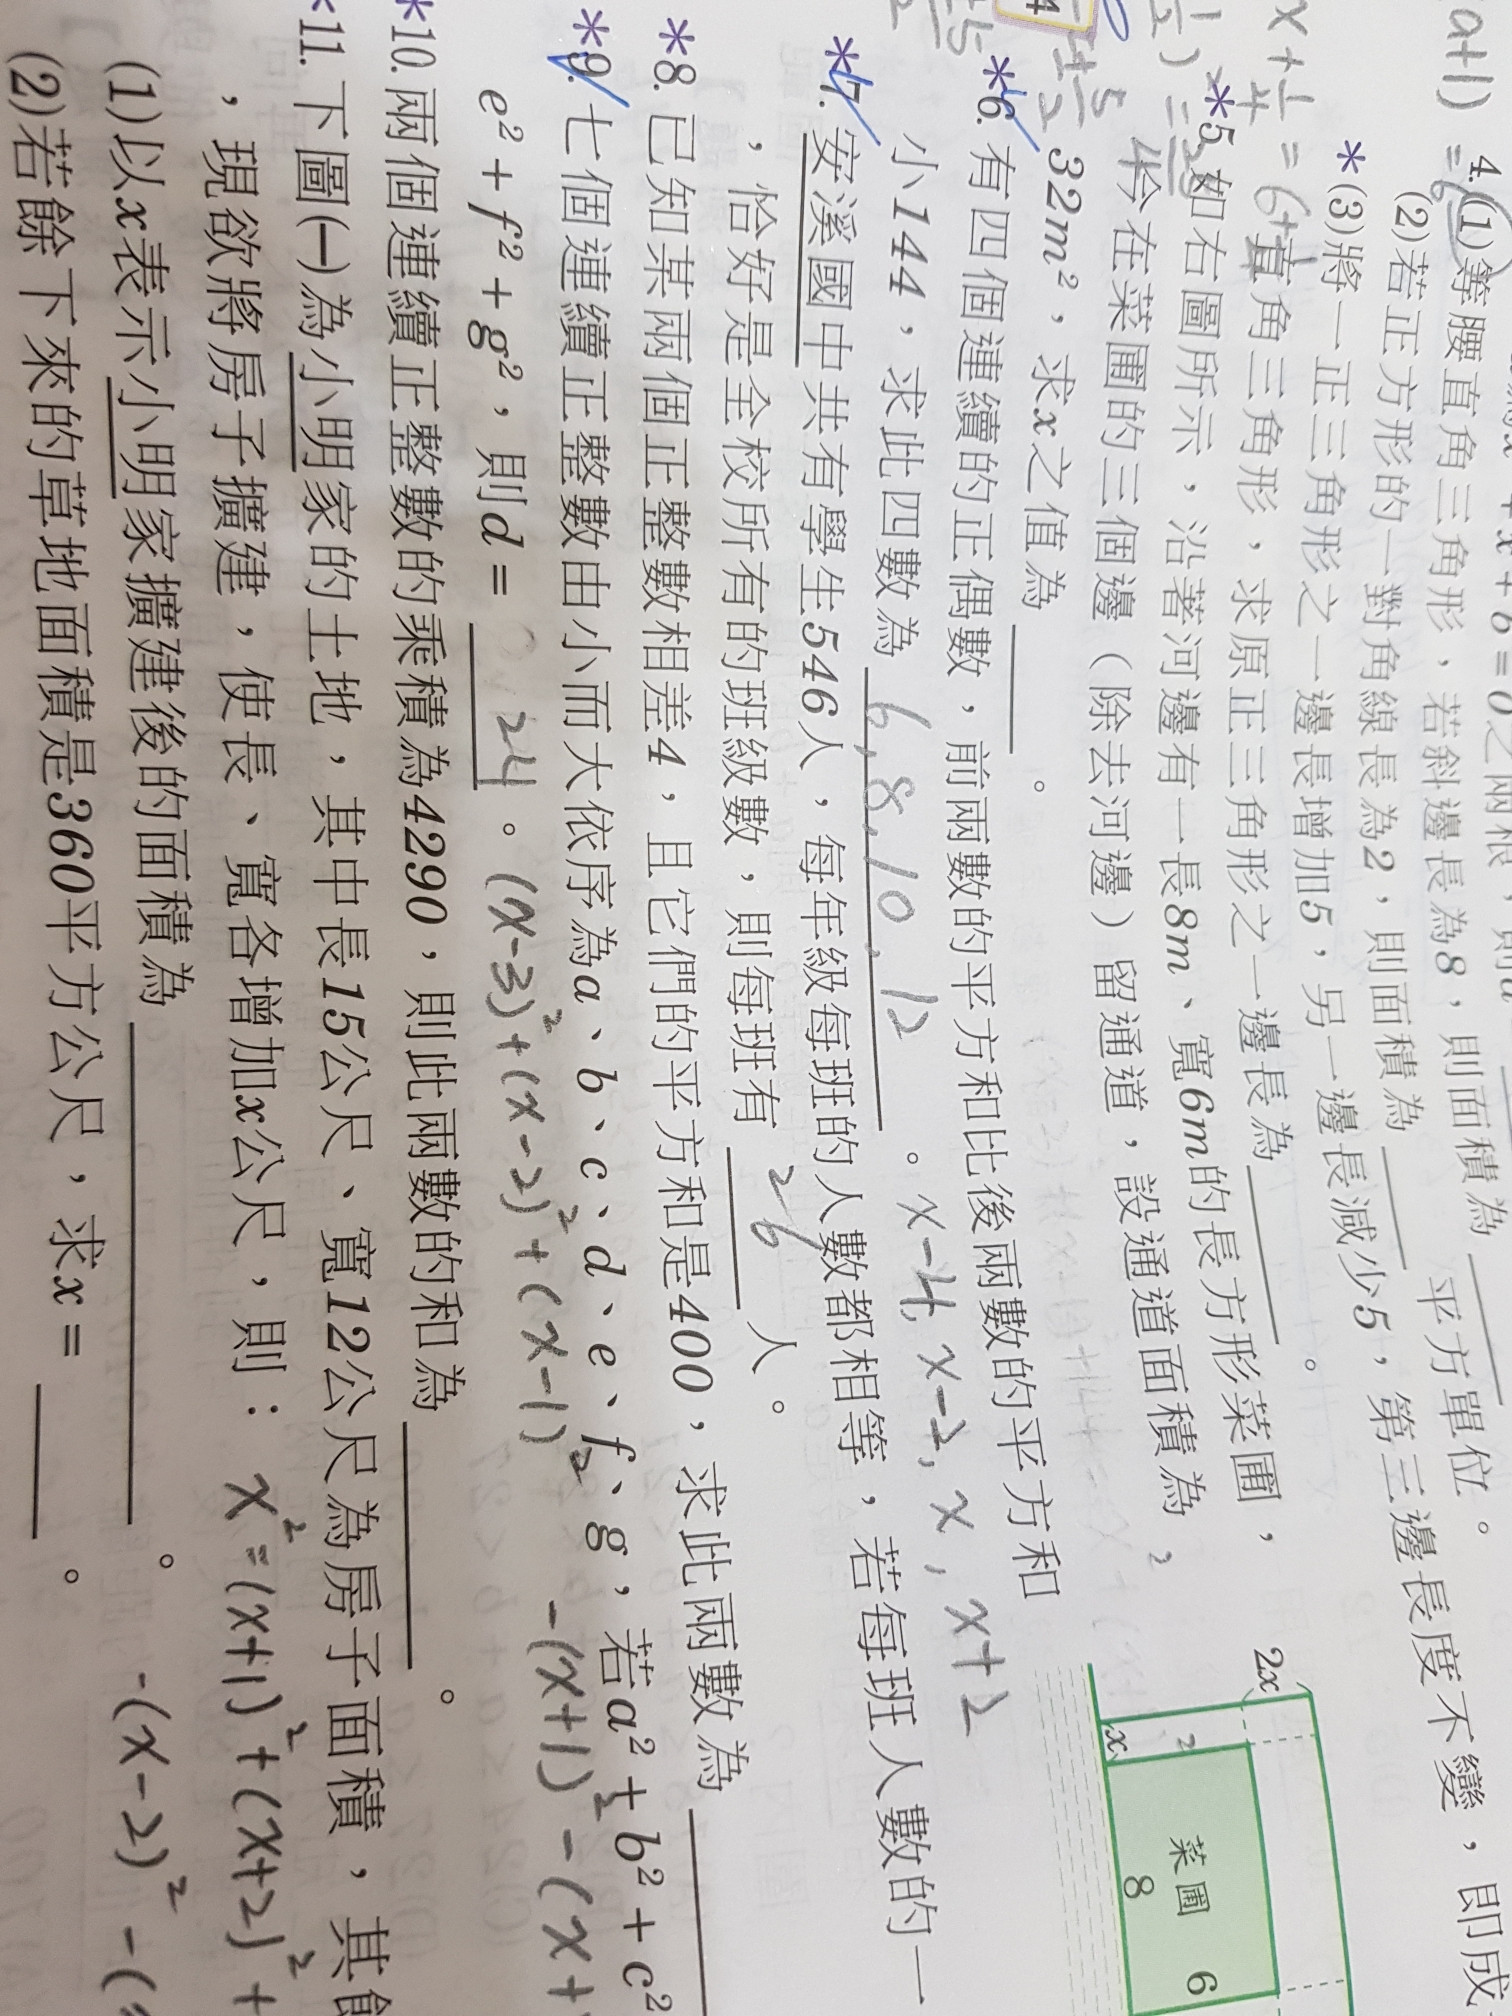 4.(1)等腰直角三角形，若斜邊長為8，則面積為 平方單位。
(2)若正方形的一對角線長為2，則面積為
*(3)將一正三角形之一邊長增加5，另一邊長減少5，第三邊長度不變，即成
直角三角形，求原正三角形之一邊長為 。
*5.如右圖所示，沿著河邊有一長8m、寬6m的長方形菜圃，
今在菜圃的三個邊（除去河邊）留通道，設通道面積為
32m²，求x之值為 。
2x
x
菜圃
8
6
*6.有四個連續的正偶數，前兩數的平方和比後兩數的平方和
小144，求此四數為 6,8,10,12 。 x-4, x-2, x, x+2
*7.安溪國中共有學生546人，每年級每班的人數都相等，若每班人數的一
，恰好是全校所有的班級數，則每班有 26 人。
*8.已知某兩個正整數相差4，且它們的平方和是400，求此兩數為
*9.七個連續正整數由小而大依序為a、b、c、d、e、f、g，若a²+b²+c²
e²+f²+g²，則d= 24 。 (x-3)²+(x-2)²+(x-1)² -(x+1)²-(x+
*10.兩個連續正整數的乘積為4290，則此兩數的和為 。
*11.下圖(一)為小明家的土地，其中長15公尺、寬12公尺為房子面積，其餘
，現欲將房子擴建，使長、寬各增加x公尺，則： x²=(x+1)²+(x+2)²+
(1)以x表示小明家擴建後的面積為 。 -(x-2)²-(
(2)若餘下來的草地面積是360平方公尺，求x= 。